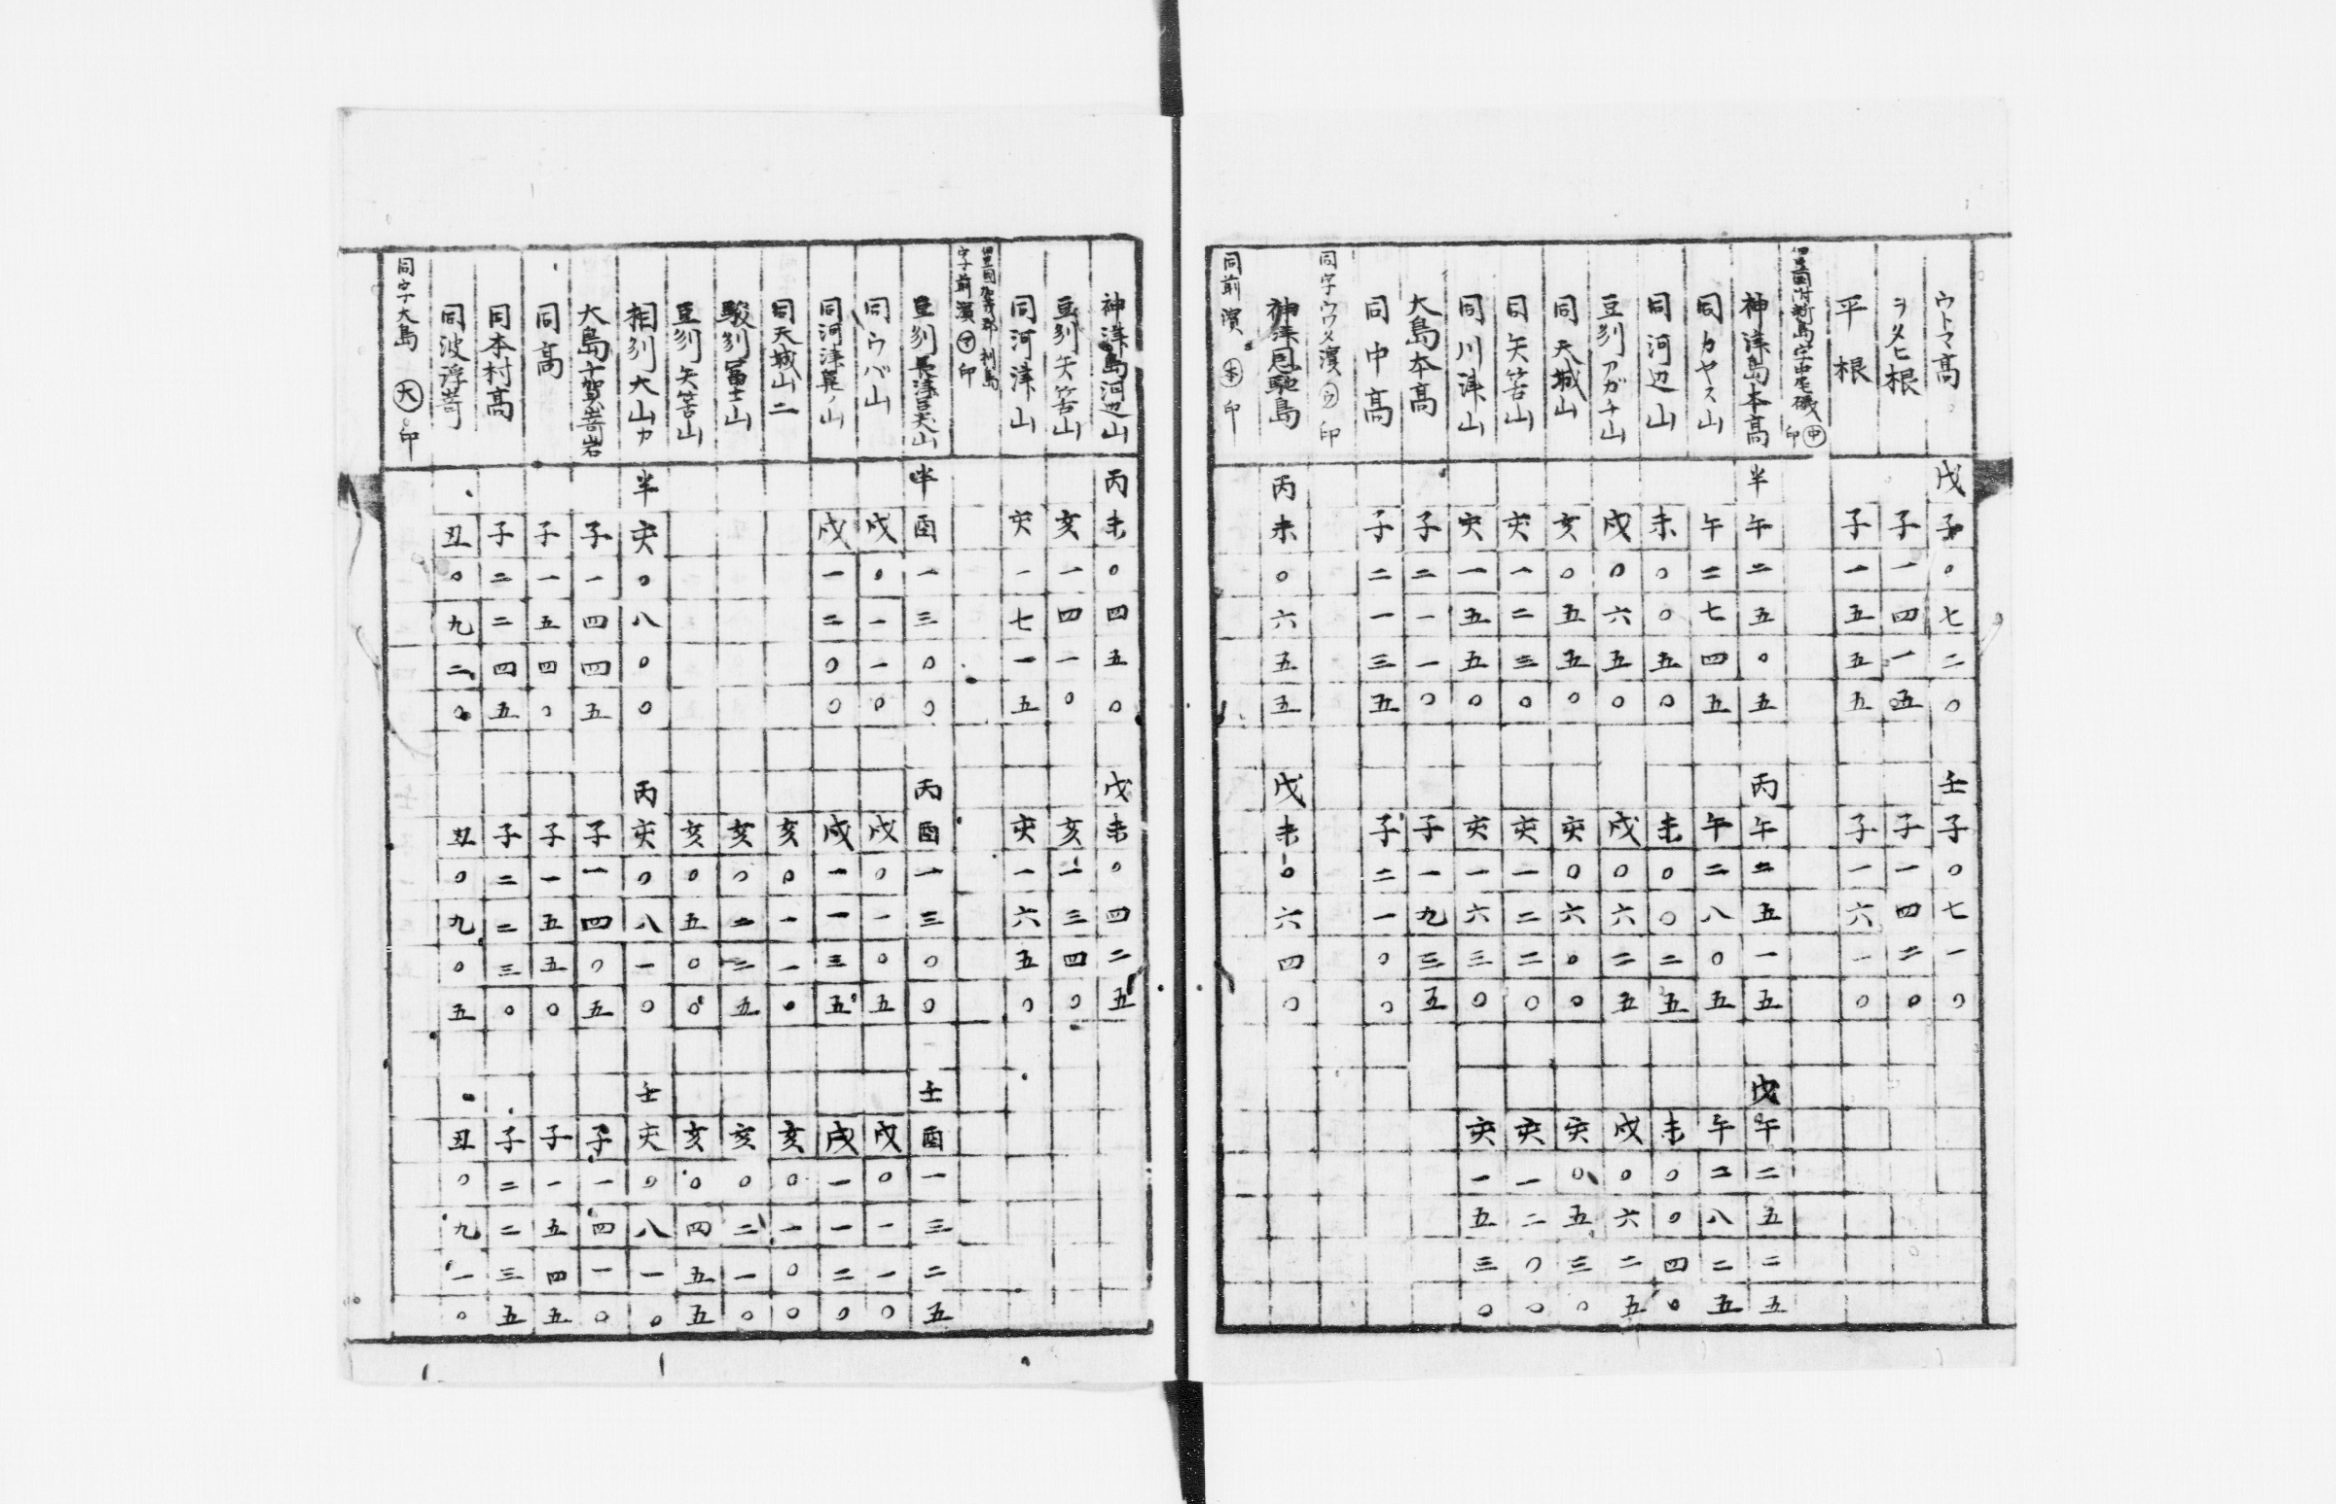 ウトマ高 戊子〇七二〇 壬子〇七一〇
ヲタヒ根 子一四一五 子一四二〇
平根 子一五五五 子一六一〇
神津島本高 半午二五〇五 丙午二五一五 戊午二五二五
同カヤス山 午二七四五 午二八〇五 午二八二五
同河辺山 未〇〇五〇 未〇〇二五 未〇〇四〇
豆刕アガチ山 戌〇六五〇 戌〇六二五 戌〇六二五
同天城山 亥〇五五〇 亥〇六〇〇 亥〇五三〇
同矢筈山 亥一二三〇 亥一二二〇 亥一二〇〇
同川津山 亥一五五〇 亥一六三〇 亥一五三〇
大島本高 子二一一〇 子一九三五
同中高 子二一三五 子二一〇〇
同字ウワタ濱 ウ印
神津恩馳島 丙未〇六五五 戊未〇六四〇
同前濱 本印
神津島河辺山 丙未〇四五〇 戊未〇四二五
豆刕矢筈山 亥一四一〇 亥一三四〇
同河津山 亥一七一五 亥一六五〇
字前濱 マ印
豆刕 半酉一三〇〇 丙酉一三〇〇 壬酉一三二五
同ウバ山 戌〇一一〇 戌〇一〇五 戌〇一一〇
同河津 山 戌一二〇〇 戌一一三五 戌一一二〇
同天城山二 亥〇一一〇 亥〇一〇〇
駿刕冨士山 亥〇二二五 亥〇二一〇
豆刕矢筈山 亥〇五〇〇 亥〇四五五
相刕大山カ 半亥〇八〇〇 丙亥〇八一〇 壬亥〇八一〇
大島千賀嵜岩 子一四四五 子一四〇五 子一四一〇
同高 子一五四〇 子一五五〇 子一五四五
同本村高 子二二四五 子二二三〇 子二二三五
同波浮嵜 丑〇九二〇 丑〇九〇五 丑〇九一〇
同字大島 大印